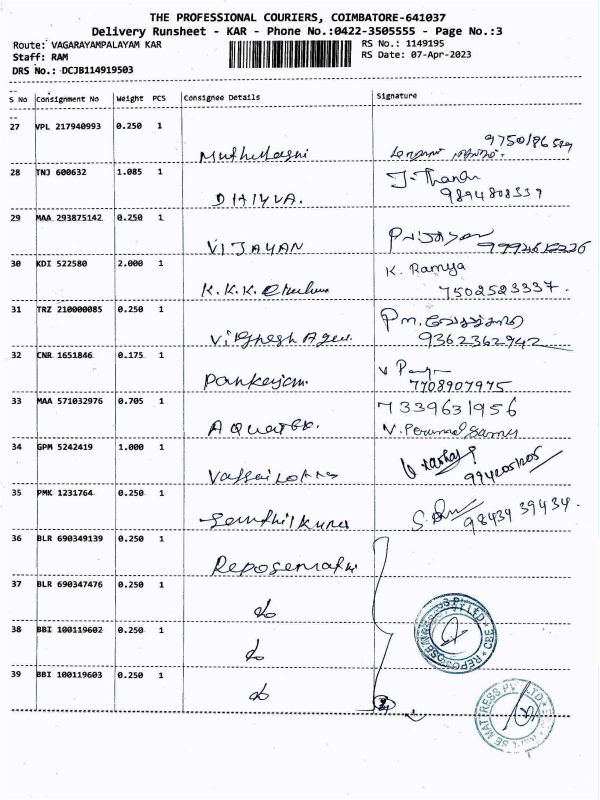 THE PROFESSIONAL COURIERS, COIMBATORE-641037
Delivery Runsheet - KAR - Phone No.:0422-3505555 - Page No.:3
Route: VAGARAYAMPALAYAM KAR RS No.: 1149195
Staff: RAM RS Date: 07-Apr-2023
DRS No.: DCJB114919503
S No Consignment No Weight PCS Consignee Details Signature
27 VPL 217940993 0.250 1
28 TNJ 600632 1.085 1 J. Thandu
DHIYVA. 9894808339
29 MAA 293875142 0.250 1
VIJAYAN
30 KDI 522580 2.000 1 K. Ramya
K.K.K. 7502523337.
31 TRZ 210000085 0.250 1 Pm.
Vignesh Agen. 9362362942
32 CNR 1651846 0.175 1
Pankajam. 7708907975
33 MAA 571032976 0.705 1 7339631956
N. Perumal Samy
34 GPM 5242419 1.000 1
35 PMK 1231764 0.250 1 98434 39434.
36 BLR 690349139 0.250 1
37 BLR 690347476 0.250 1
do
38 BBI 100119602 0.250 1
do
39 BBI 100119603 0.250 1
do